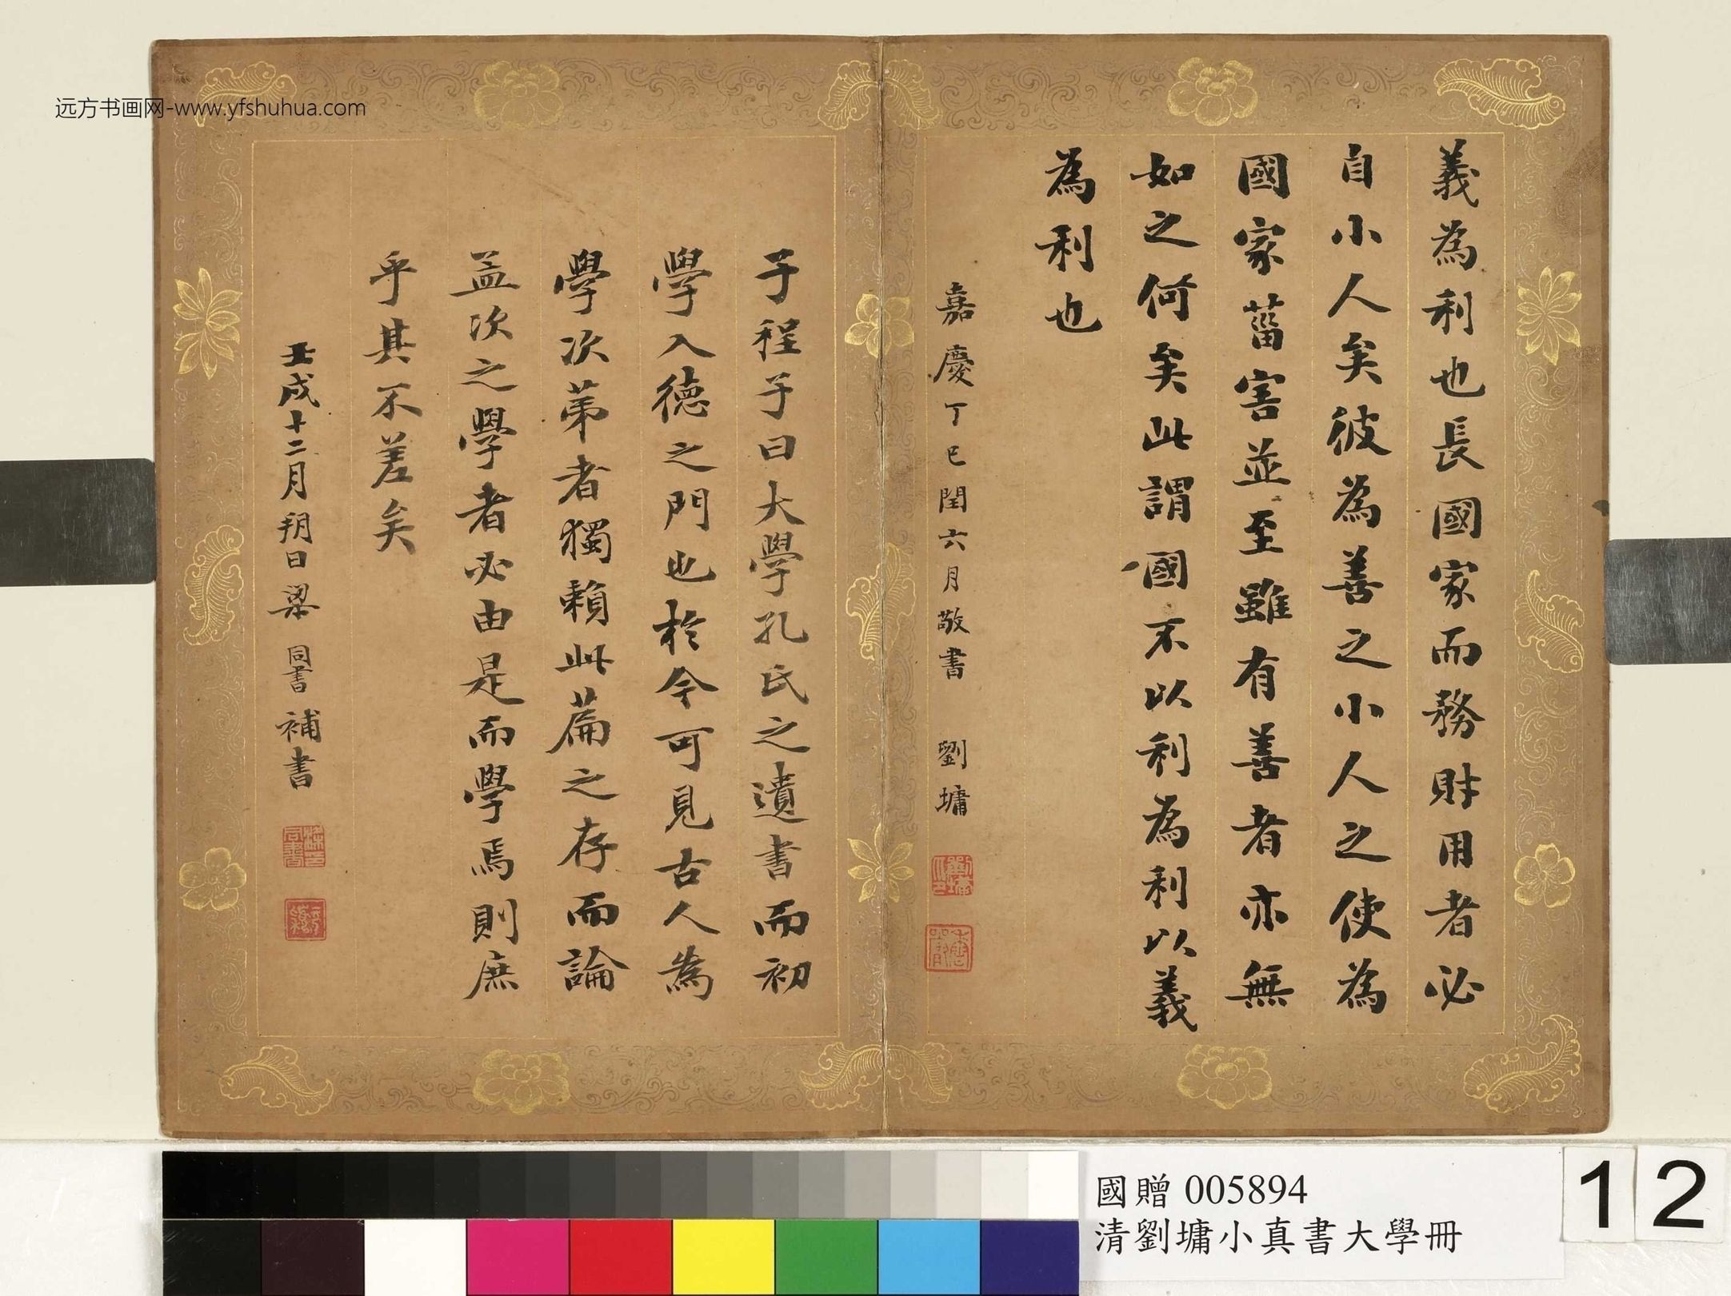 远方书画网-www.yfshuhua.com
義為利也長國家而務財用者必
自小人矣彼為善之小人之使為
國家菑害並至雖有善者亦無
如之何矣此謂國不以利為利以義
為利也
嘉慶丁巳閏六月敬書 劉墉
子程子曰大學孔氏之遺書而初
學入德之門也於今可見古人為
學次第者獨賴此篇之存而論
孟次之學者必由是而學焉則庶
乎其不差矣
壬戌十二月朔日梁同書補書
國贈 005894
清劉墉小真書大學冊
12